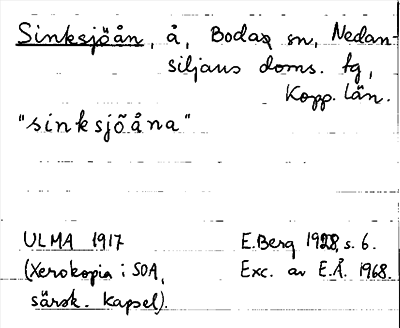 Sinksjöån, å, Bodas sn, Nedan-
siljans doms. tg,
Kopp. län.
"sinksjöåna"
ULMA 1917 E.Berg 1928, s. 6.
(Xerokopia i SOA, Exc. av E.Å. 1968.
särsk. kapsel).